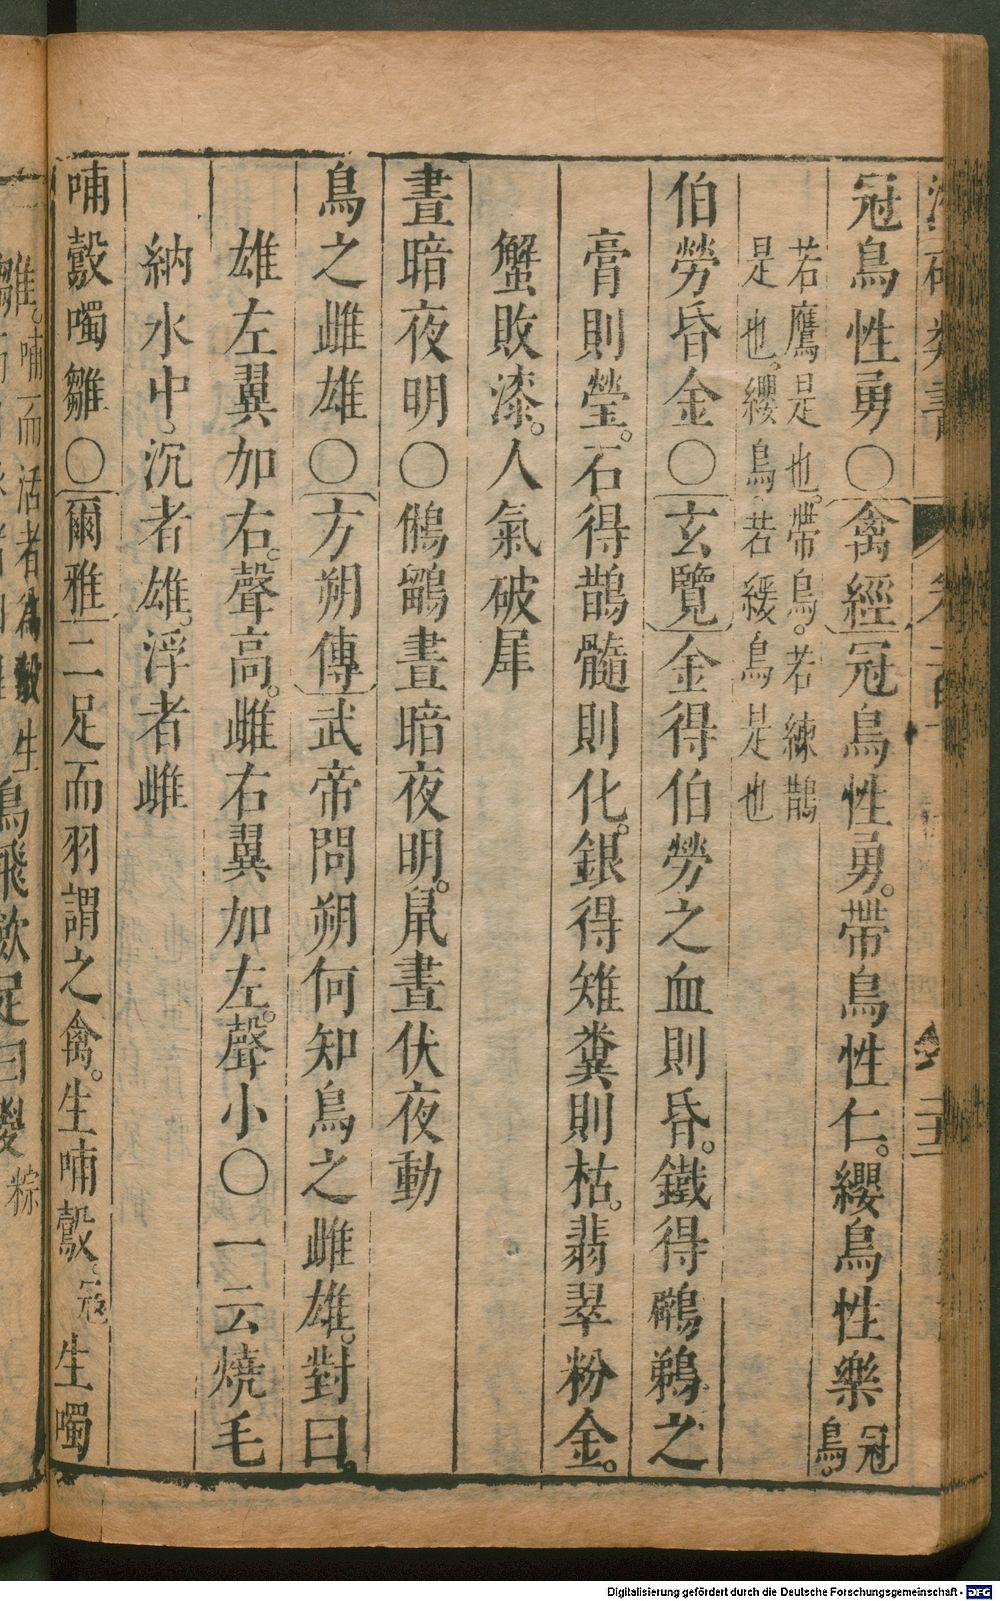 冠鳥性勇〇禽經冠鳥性勇。帶鳥性仁。纓鳥性樂冠鳥。
若鷹是也。帶鳥。若練鵲
是也。纓鳥。若綬鳥是也
伯勞昏金〇玄覽金得伯勞之血則昏。鐵得鸊鵜之
膏則瑩。石得鵲髓則化。銀得雉糞則枯。翡翠粉金。
蟹敗漆。人氣破犀
晝暗夜明〇鵂鶹晝暗夜明。鼠晝伏夜動
鳥之雌雄〇方朔傳武帝問朔何知鳥之雌雄。對曰。
雄左翼加右。聲高。雌右翼加左。聲小〇一云燒毛
納水中、沉者雄。浮者雌
哺鷇噣雛〇爾雅二足而羽謂之禽。生哺鷇。冦生噣
雛。哺而活者爲鷇生
鳥飛歛足曰翪粽
Digitalisierung gefördert durch die Deutsche Forschungsgemeinschaft - DFG